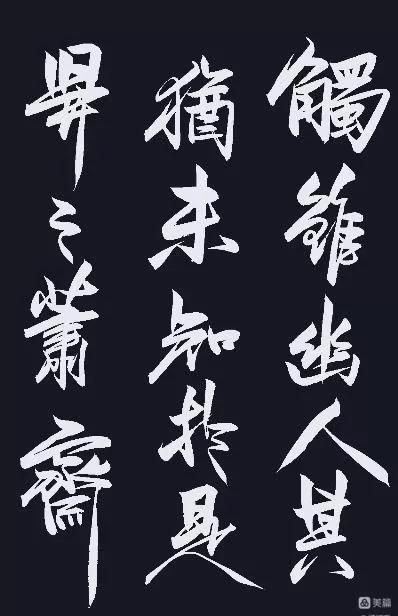 觸雖幽人其
猶未知於是
之蕭齋
美篇